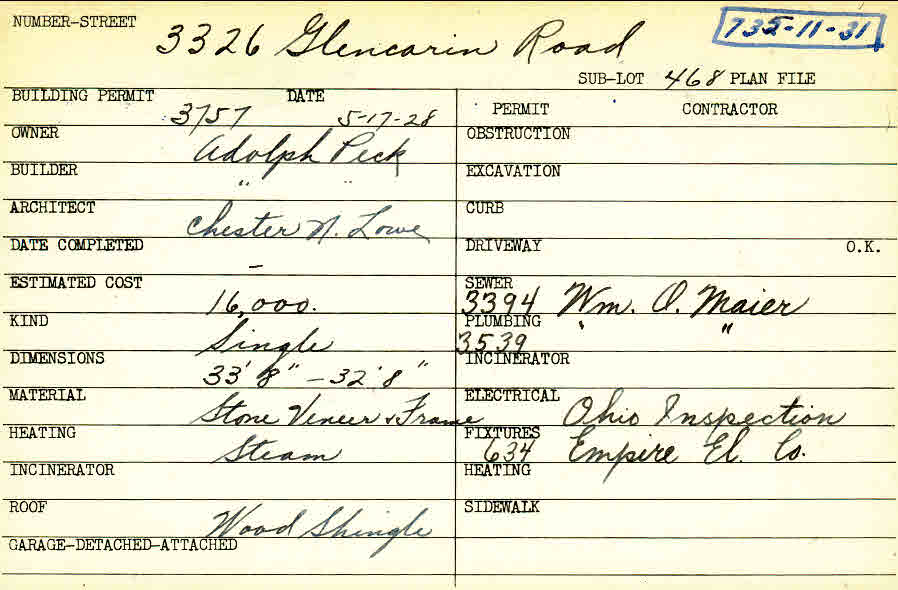 NUMBER-STREET 3326 Glencarin Road 735-11-31
SUB-LOT 468 PLAN FILE
BUILDING PERMIT 3757 DATE 5-17-28
PERMIT CONTRACTOR
OWNER Adolph Peck
OBSTRUCTION
BUILDER " "
EXCAVATION
ARCHITECT Chester N. Lowe
CURB
DATE COMPLETED –
DRIVEWAY O.K.
ESTIMATED COST 16,000.
SEWER 3394 Wm. O. Maier
KIND Single
PLUMBING 3539 " "
DIMENSIONS 33' 8" – 32' 8"
INCINERATOR
MATERIAL Stone Veneer & Frame
ELECTRICAL Ohio Inspection
HEATING Steam
FIXTURES 634 Empire El. Co.
INCINERATOR
HEATING
ROOF Wood Shingle
SIDEWALK
GARAGE-DETACHED-ATTACHED